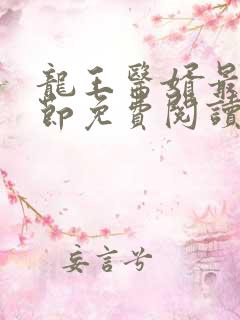 龍王醫婿最
節免費閱讀
妄言兮